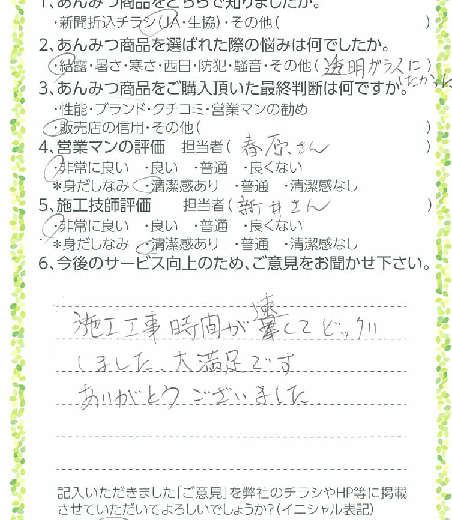 1、あんみつ商品をどちらで知りましたか。
・新聞折込チラシ(JA・生協)・その他( )
2、あんみつ商品を選ばれた際の悩みは何でしたか。
・結露・暑さ・寒さ・西日・防犯・騒音・その他(透明ガラスに
したかった
3、あんみつ商品をご購入頂いた最終判断は何ですか。
・性能・ブランド・クチコミ・営業マンの勧め
・販売店の信用・その他( )
4、営業マンの評価 担当者(春原さん )
・非常に良い ・良い ・普通 ・良くない
*身だしなみ ・清潔感あり ・普通 ・清潔感なし
5、施工技師評価 担当者(新井さん )
・非常に良い ・良い ・普通 ・良くない
*身だしなみ ・清潔感あり ・普通 ・清潔感なし
6、今後のサービス向上のため、ご意見をお聞かせ下さい。
施工工事時間が速くてビックリ
しました、大満足です
ありがとうございました
記入いただきました「ご意見」を弊社のチラシやHP等に掲載
させていただいてよろしいでしょうか?(イニシャル表記)